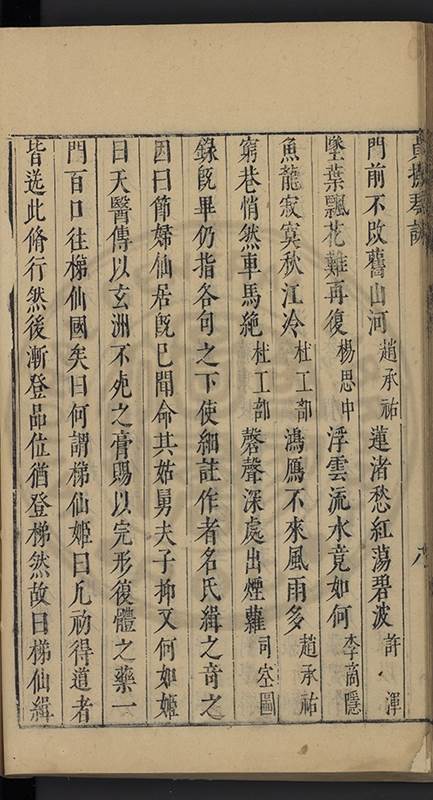 門前不改舊山河趙承祐蓮渚愁紅蕩碧波許渾
墜葉飄花難再復楊思中浮雲流水竟如何李商隱
魚龍寂寞秋江冷杜工部鴻鴈不來風雨多趙承祐
窮巷悄然車馬絶杜工部磬聲深處出煙蘿司空圖
錄旣畢仍指各句之下使細註作者名氏緝之竒之
因曰節婦仙居旣已聞命其姑舅夫子抑又何如姬
曰天醫傳以玄洲不死之膏賜以完形復體之藥一
門百口往梯仙國矣曰何謂梯仙姬曰凢初得道者
皆送此脩行然後漸登品位猶登梯然故曰梯仙緝